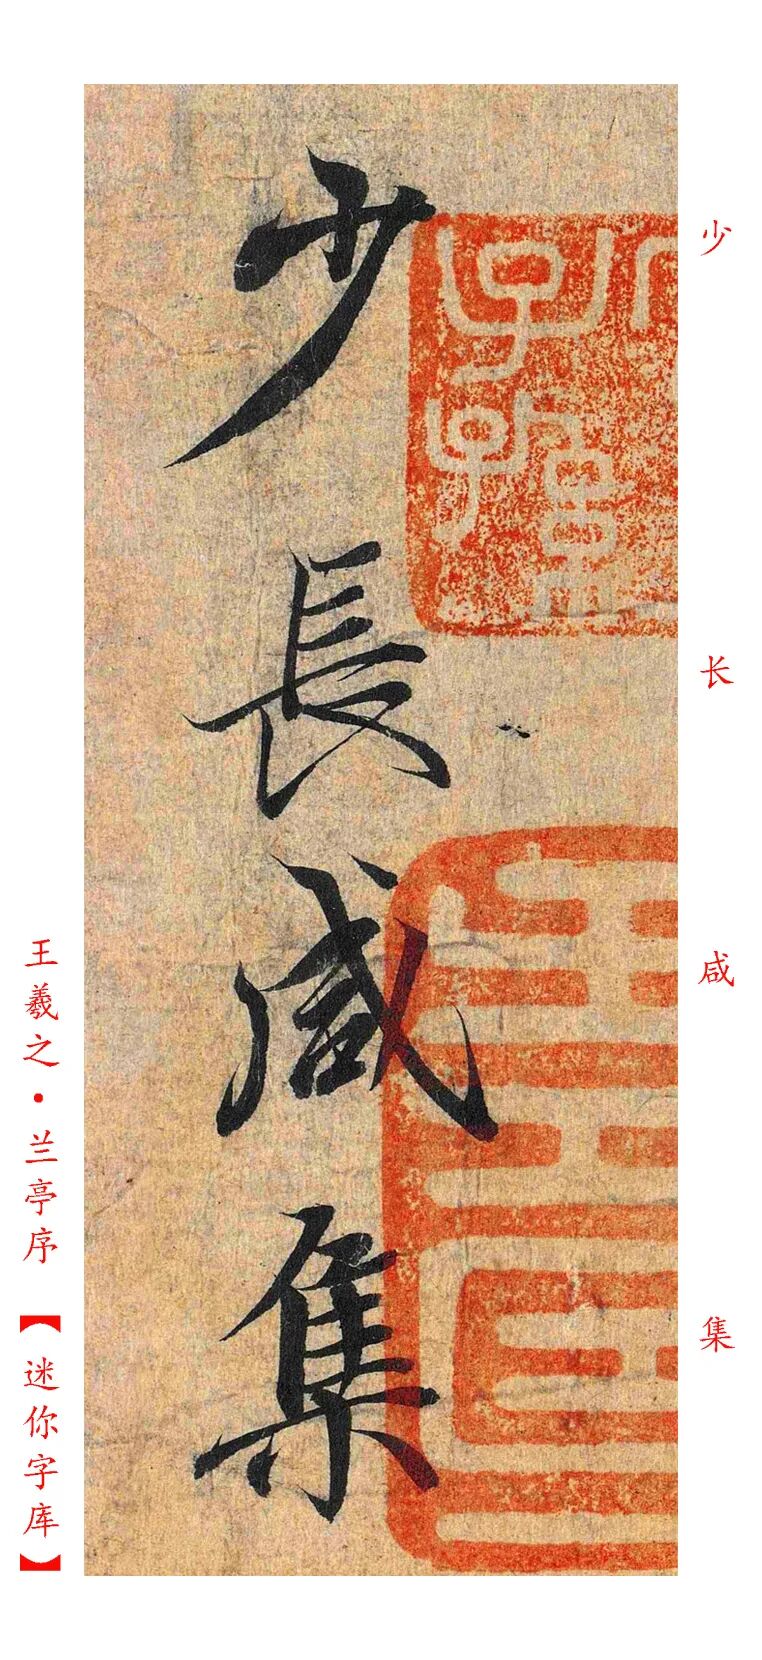 少
长
咸
集
少長咸集
王羲之·兰亭序【迷你字库】